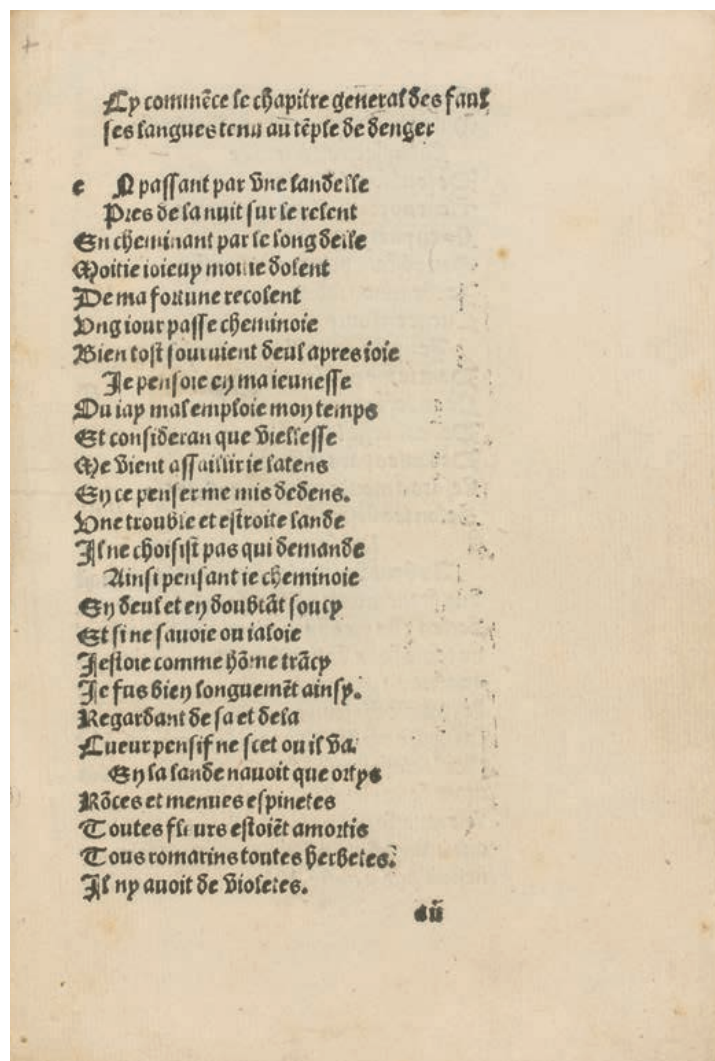 Cy commẽce le chapitre general des faul
ses langues tenu au tẽple de denger
e N passant par vne landelle
Pres de la nuit sur le relent
En cheminant par le long delle
Moitie ioieux moitie dolent
De ma fortune recolent
Vng iour passe cheminoie
Bien tost souruient deul apres ioie
Je pensoie en ma ieunesse
Ou iay mal emploie mon temps
Et consideran que viellesse
Me vient assaillir ie latens
En ce penser me mis dedens.
Vne trouble et estroite lande
Il ne choisist pas qui demande
Ainsi pensant ie cheminoie
En deul et en doubtãt soucy
Et si ne sauoie ou ialoie
Jestoie comme hõme trãcy
Je fus bien longuemẽt ainsy.
Regardant de sa et dela
Cueur pensif ne scet ou il va.
En la lande nauoit que ortys
Rõces et menues espinetes
Toutes fleurs estoiẽt amortis
Tous romarins toutes herbetes.
Il ny auoit de violetes.
aii